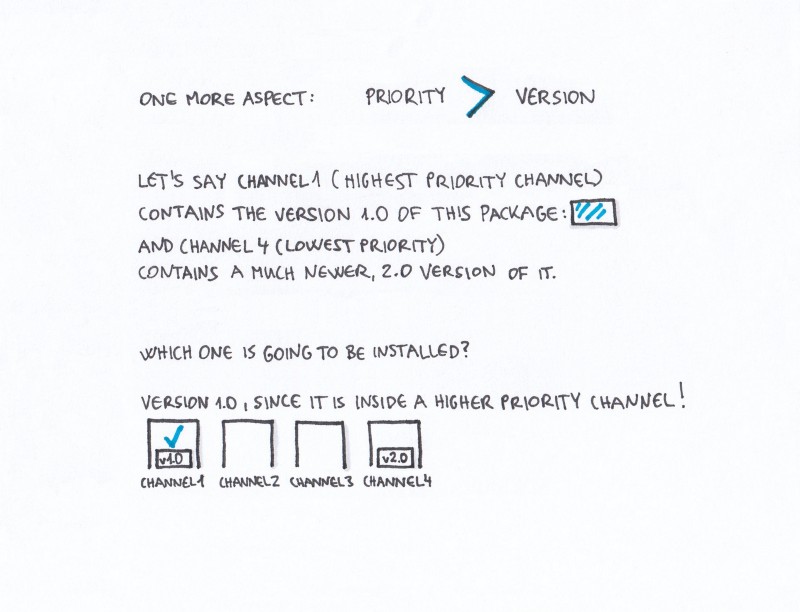 ONE MORE ASPECT: PRIORITY > VERSION
LET'S SAY CHANNEL1 (HIGHEST PRIORITY CHANNEL)
CONTAINS THE VERSION 1.0 OF THIS PACKAGE:
AND CHANNEL4 (LOWEST PRIORITY)
CONTAINS A MUCH NEWER, 2.0 VERSION OF IT.
WHICH ONE IS GOING TO BE INSTALLED?
VERSION 1.0, SINCE IT IS INSIDE A HIGHER PRIORITY CHANNEL!
v1.0 v2.0
CHANNEL1 CHANNEL2 CHANNEL3 CHANNEL4